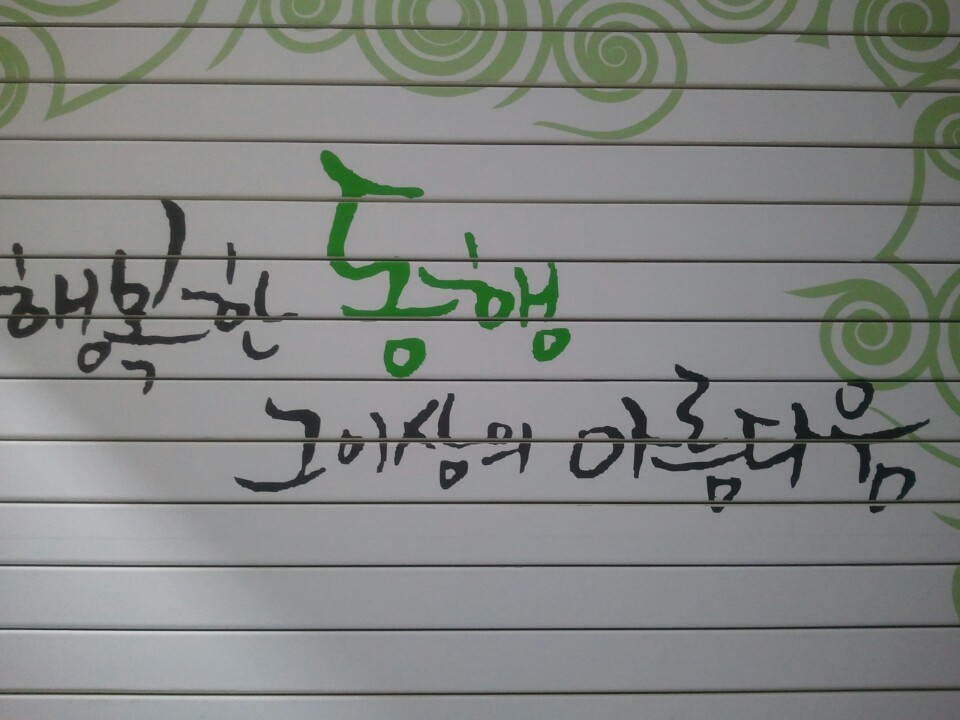 행복한 동행
그 이상의 아름다움